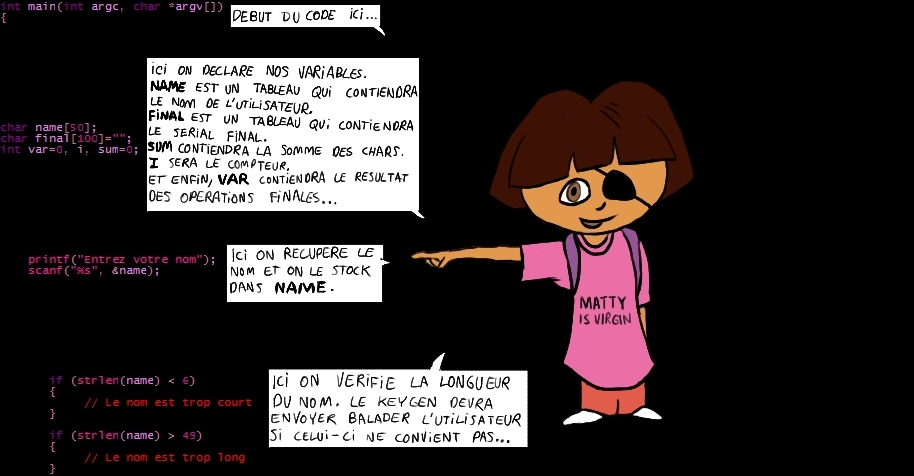 int main(int argc, char *argv[])
{
DEBUT DU CODE ICI...
ICI ON DECLARE NOS VARIABLES.
NAME EST UN TABLEAU QUI CONTIENDRA
LE NOM DE L'UTILISATEUR.
FINAL EST UN TABLEAU QUI CONTIENDRA
LE SERIAL FINAL.
SUM CONTIENDRA LA SOMME DES CHARS.
I SERA LE COMPTEUR.
ET ENFIN, VAR CONTIENDRA LE RESULTAT
DES OPERATIONS FINALES...
char name[50];
char final[100]="";
int var=0, i, sum=0;
printf("Entrez votre nom");
scanf("%s", &name);
ICI ON RECUPERE LE
NOM ET ON LE STOCK
DANS NAME.
MATTY
IS VIRGIN
if (strlen(name) < 6)
{
// Le nom est trop court
}
if (strlen(name) > 49)
{
// Le nom est trop long
}
ICI ON VERIFIE LA LONGUEUR
DU NOM. LE KEYGEN DEVRA
ENVOYER BALADER L'UTILISATEUR
SI CELUI-CI NE CONVIENT PAS...